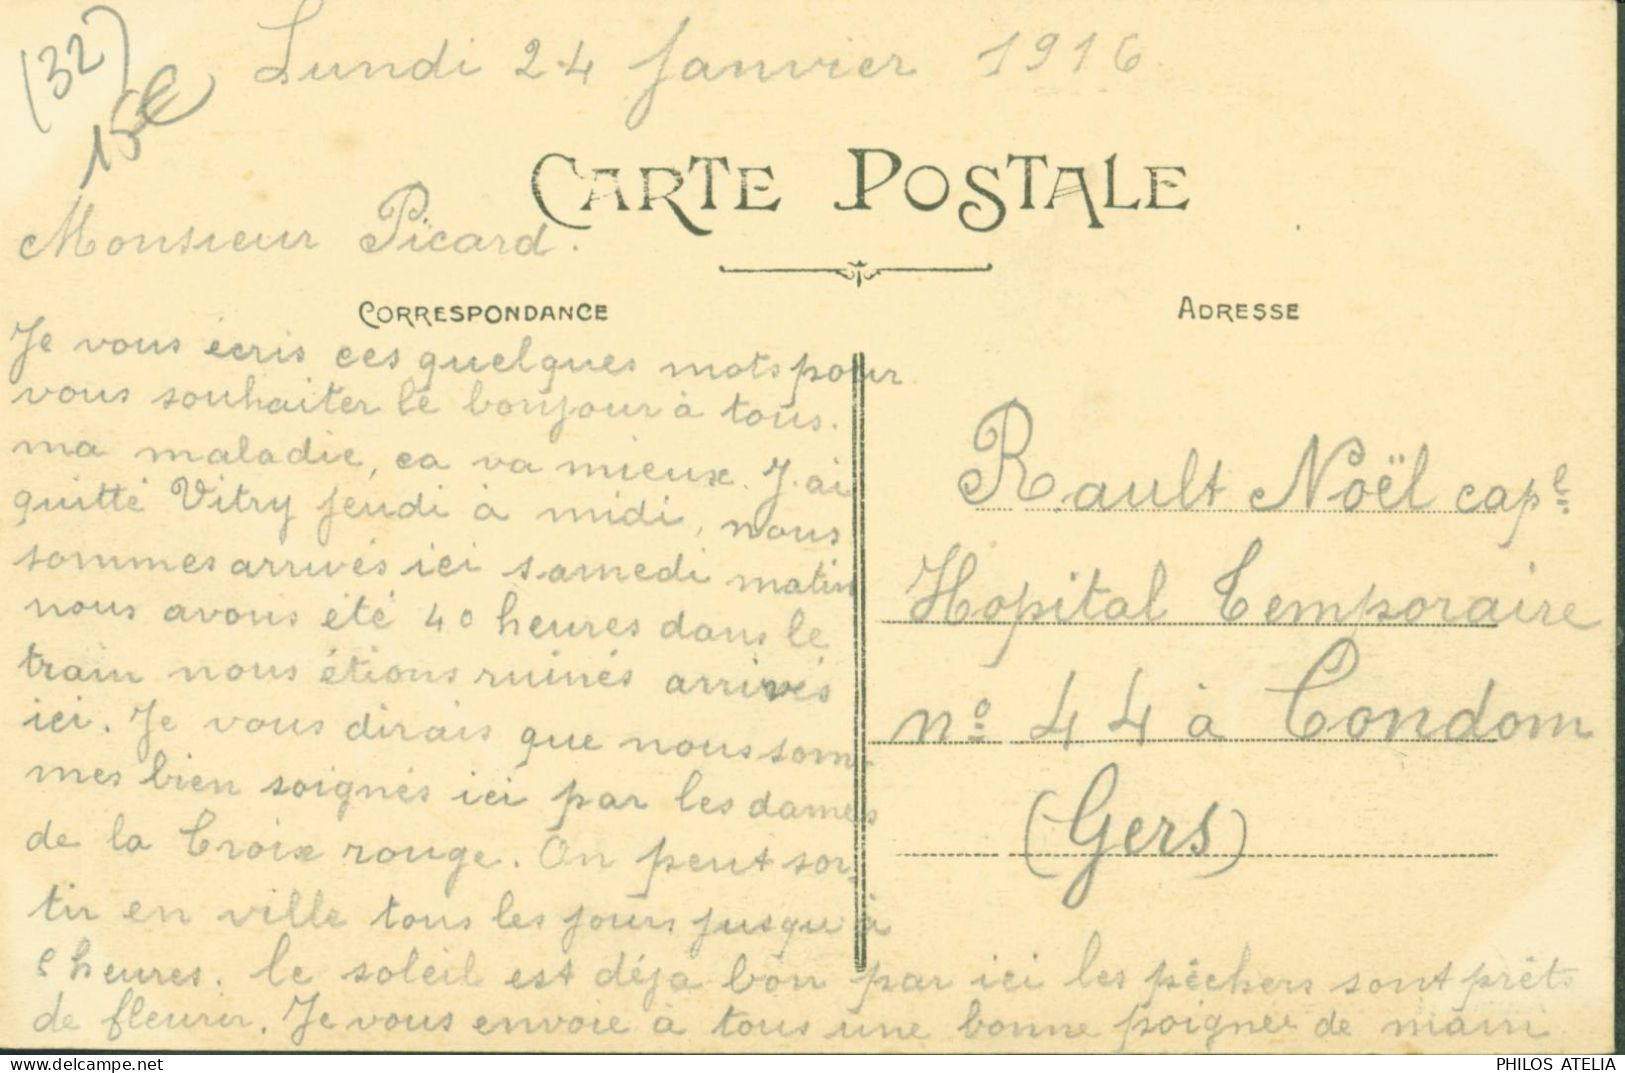 (32)
15€
Lundi 24 Janvier 1916
CARTE POSTALE
Monsieur Picard.
CORRESPONDANCE
Je vous écris ces quelques mots pour
vous souhaiter le bonjour à tous.
ma maladie, ca va mieux. J'ai
quitté Vitry jeudi à midi, nous
sommes arrivés ici samedi matin
nous avons été 40 heures dans le
train nous étions ruinés arrivés
ici. Je vous dirais que nous som-
mes bien soignés ici par les dames
de la Croix rouge. On peut sor-
tir en ville tous les jours jusqu'à
heures. le soleil est déja bon par ici les pêchers sont prêts
de fleurir. Je vous envoie à tous une bonne poignée de main
ADRESSE
Rault Noël capl
Hopital Temporaire
no 44 à Condom
(Gers)
PHILOS ATELIA
delcampe.net